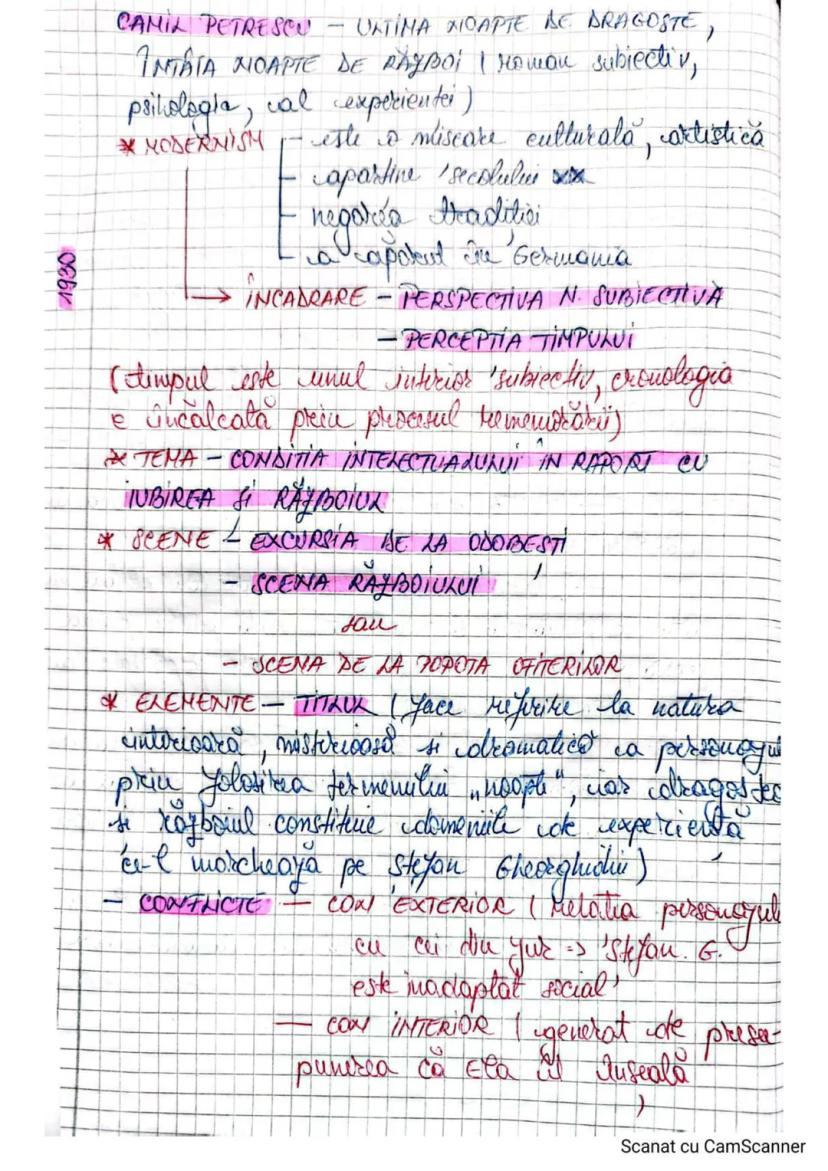 CAMIL PETRESCU – ULTIMA NOAPTE DE DRAGOSTE,
ÎNTÂIA NOAPTE DE RĂZBOI (roman subiectiv,
psihologic, al experienței)
* MODERNISM – este o mișcare culturală, artistică
– aparține secolului XX
– negarea tradiției
– a apărut în Germania
1930
→ ÎNCADRARE – PERSPECTIVA N. SUBIECTIVĂ
– PERCEPȚIA TIMPULUI
(timpul este unul interior subiectiv, cronologia
e încălcată prin procesul rememorării)
* TEMA – CONDIȚIA INTELECTUALULUI ÎN RAPORT CU
IUBIREA ȘI RĂZBOIUL
* SCENE – EXCURSIA DE LA ODOBEȘTI
– SCENA RĂZBOIULUI
sau
– SCENA DE LA POPOTA OFIȚERILOR
* ELEMENTE – TITLUL (face referire la natura
interioară, misterioasă și dramatică a personajul
prin folosirea termenului „noapte", iar dragostea
și războiul constituie domeniile de experiență
ce-l marchează pe Ștefan Gheorghidiu)
– CONFLICTE – CON EXTERIOR (relația personajul
cu cei din jur => Ștefan. G.
este inadaptat social)
– CON INTERIOR (generat de presu-
punerea că Ela îl înșeală
)
Scanat cu CamScanner